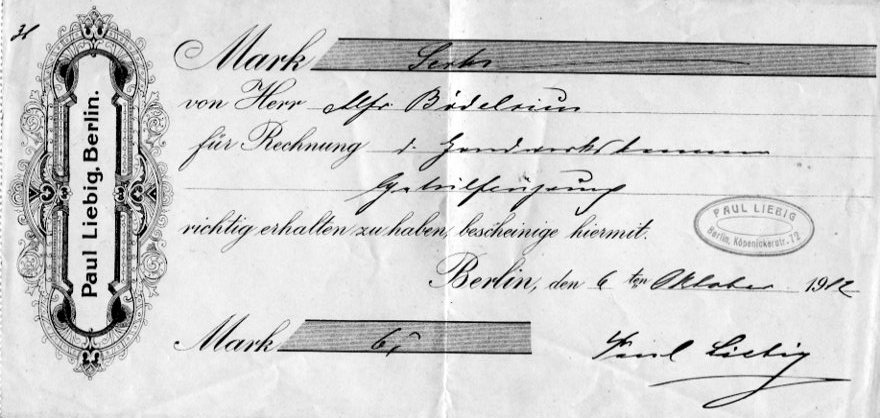 Paul Liebig, Berlin.
Mark Sechs
von Herr Alfr. Bödelrius
für Rechnung d. Handwerkskammer
richtig erhalten zu haben, bescheinige hiermit.
PAUL LIEBIG
Berlin, Köpenickerstr. 72
Berlin, den 6 ten Oktober 1912
Mark 6,
Paul Liebig